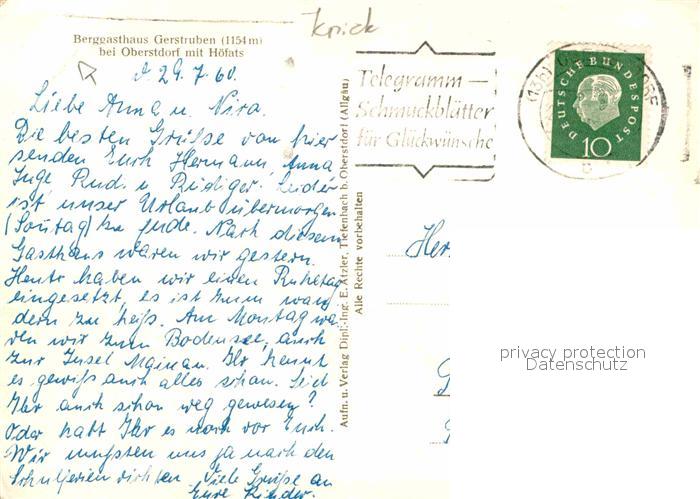 Knick
Berggasthaus Gerstruben (1154 m)
bei Oberstdorf mit Höfats
d 29.7.60.
Liebe Anna u. Nira.
Die besten Grüße von hier
senden Euch Hermann, Anna
Inge Rud. u. Rüdiger. Leider
ist unser Urlaub übermorgen
(Sontag) zu Ende. Nach diesem
Gasthaus waren wir gestern.
Heute haben wir einen Ruhetag
eingesetzt, es ist zum wan
dern zu heiß. Am Montag wa
ren wir zum Bodensee, auch
zur Insel Mainau. Ihr kennt
es gewiß auch alles schon. Seid
Ihr auch schon weg gewesen?
Oder habt Ihr es noch vor Euch.
Wir mußten uns ja nach den
Schulferien richten. Viele Grüße an
Eure Kinder.
Aufn. u. Verlag Dipl.-Ing. E. Atzler, Tiefenbach b. Oberstdorf (Allgäu)
Alle Rechte vorbehalten
Telegramm—
Schmuckblätter
für Glückwünsche
(13b)
b
DEUTSCHE BUNDESPOST
10
Her
privacy protection
Datenschutz